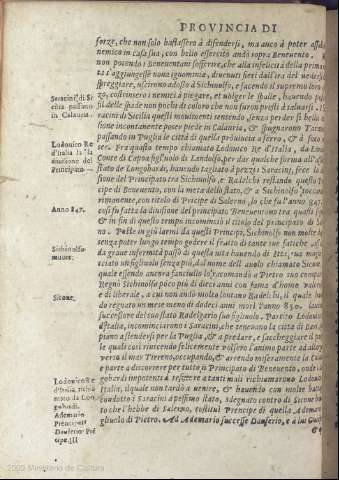 PROVINCIA DI
forze, che non solo bastassero à difendersi, ma anco à poter assali
nemico in casa sua, con bello essercito andò sopra Beneuento.
non potendo i Beneuentani sofferire, che alla infelicità della prima
s'aggiungesse noua ignominia, diuenuti fieri dall'ira del uedersi
spreggiare, uscirono adosso à Sichinolfo, e facendo il supremo lor
zo, costrinsero i nemici à piegare, et uolger le spalle, hauendo
fil delle spade non pochi di coloro che non furon presti à saluarsi.
racini di Sicilia questi mouimenti sentendo, senza perder sì bella
sione incontanente poser piede in Calauria, & spugnaron Taran
passando in Puglia le città di quelle prouincie à ferro, & à foco
ser. Fra questo tempo chiamato Lodouico Re d'Italia, da
Conte di Capoa figliuolo di Landolfo, per dar qualche forma all'
stato de Longobardi, hauendo tagliato à pezzi i Saracini, fece la
sione del Principato tra Sichinolfo, e Radelchi restando questi
cipe di Beneuento, con la metà dello stato, & à Sichinolfo toccò
rimanente, con titolo di Prencipe di Salerno, lo che fu l'anno 847.
così fu fatta la diuisione del principato Beneuentano tra questi
& in fin di questo tempo incominciò il titolo del principato di
no. Poste in giù l'armi da questi Principi, Sichinolfo non molto
senza poter lungo tempo godere il frutto di tante sue fatiche
da graue infermità passò di questa uita hauendo di Itta, sua
sciato un figliuolo senza più, dal nome dell'auolo chiamato Sicone
quale essendo ancora fanciullo lo raccomandò à Pietro suo compa
Regnò Sichinolfo poco più di dieci anni con fama d'homo
e di liberale, à cui non andò molto lontano Radelchi, il quale
do regnato un mese meno di dodeci anni morì l'anno 850.
successore del suo stato Radelgario suo figliuolo. Partito Lodouico
d'Italia, incominciarono i Saracini, che teneuano la città di
piano à stendersi per la Puglia, & à predare, e saccheggiare il
le quali cose riuscendo felicemente uolsero l'animo parte ad
uerso il mar Tirreno, occupando, & arrendo miseramente la
e parte à discorrere per tutto il Principato di Beneuento, onde i
gobardi impotenti à resistere à tanti mali richiamarono Lodouico
Italia, il quale non tardò à uenire, & hauendo con molte
condotto i Saracini à pessimo stato, sdegnato contro di Sicone
to che l'hebbe di Salerno, costituì Prencipe di quella Ademario
gliuolo di Pietro. Ad Ademario successe Dauferio, e à
Saracini di Sicilia passano in Calauria.
Lodouico Re d'Italia fa la diuisione del Principato
Anno 847.
Sichinolfo muore.
Sicone.
Lodouico Re d'Italia, richiamato da Longobardi.
Ademario Prencipe.
Dauferio Précipe. III
2009 Ministerio de Cultura